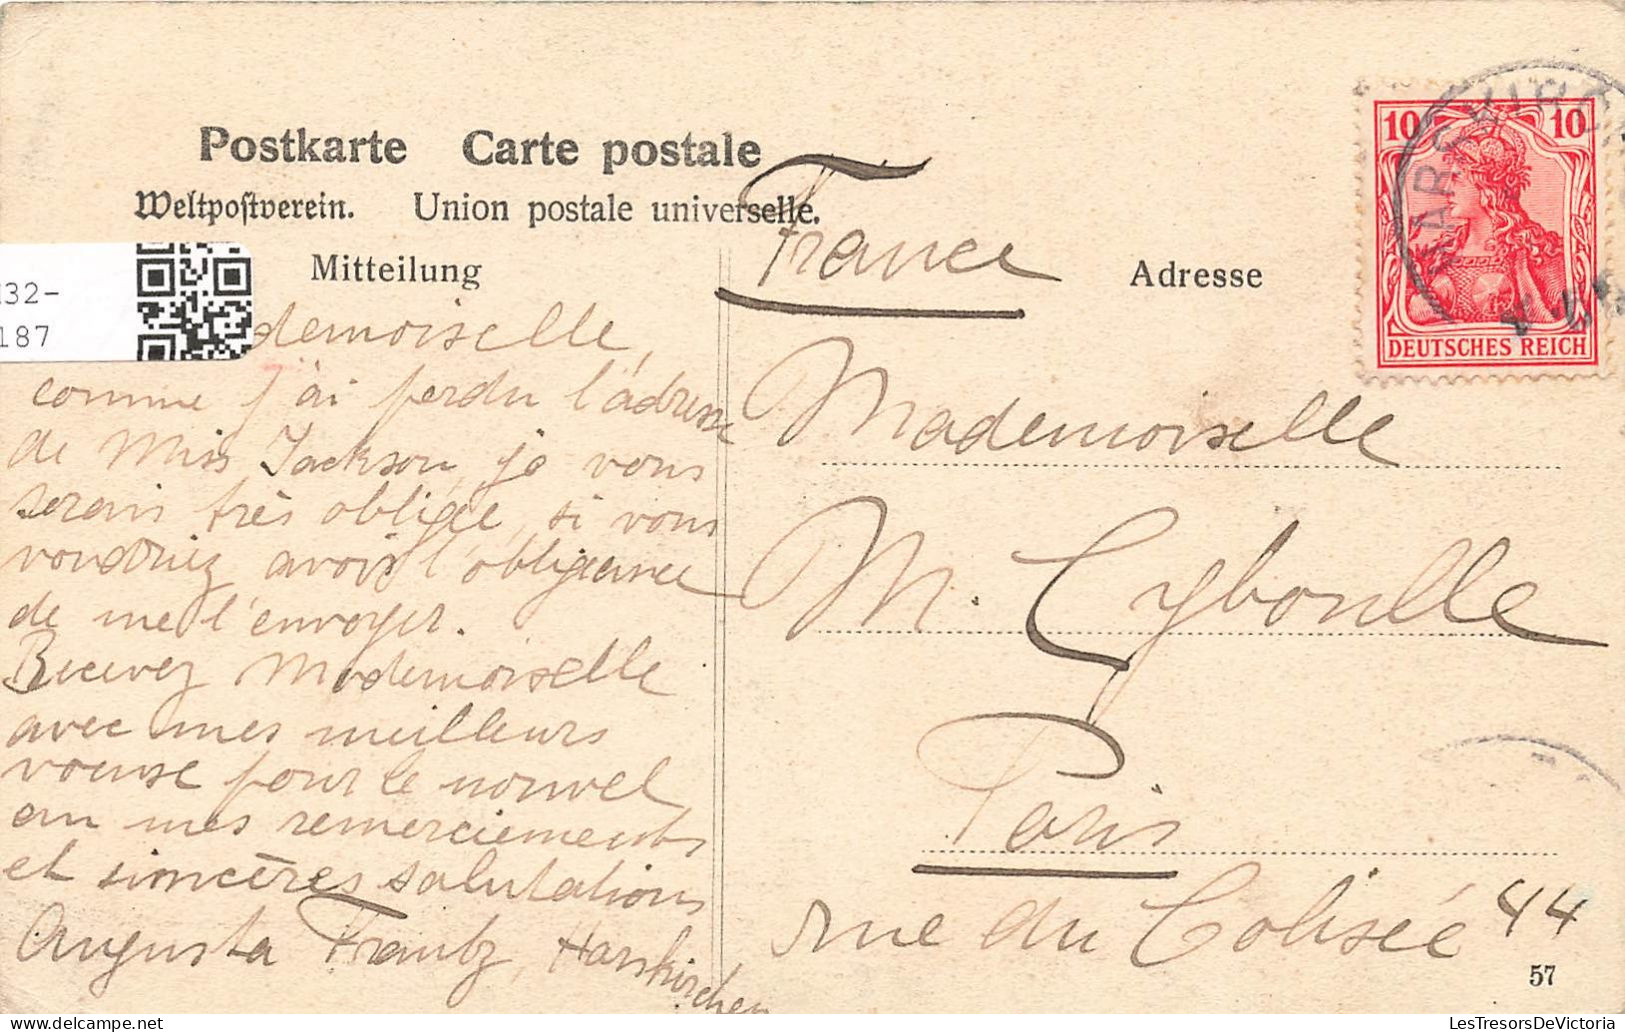 Postkarte Carte postale
Weltpostverein. Union postale universelle.
Mitteilung
Adresse
France
demoiselle,
comme j'ai perdu l'adresse
de Miss Jackson, je vous
serais très obligée, si vous
voudriez avoir l'obligeance
de me l'envoyer.
Recevez Mademoiselle
avec mes meilleurs
voeuse pour le nouvel
an mes remerciements
et sincères salutations
Augusta Frantz, Harskirchen
Mademoiselle
M. Cyboulle
Paris
rue du Colisée 44
57
10 10
DEUTSCHES REICH
HARSKIRCH
I32-
187
www.LesTresorsDeVictoria.com
LesTresorsDeVictoria